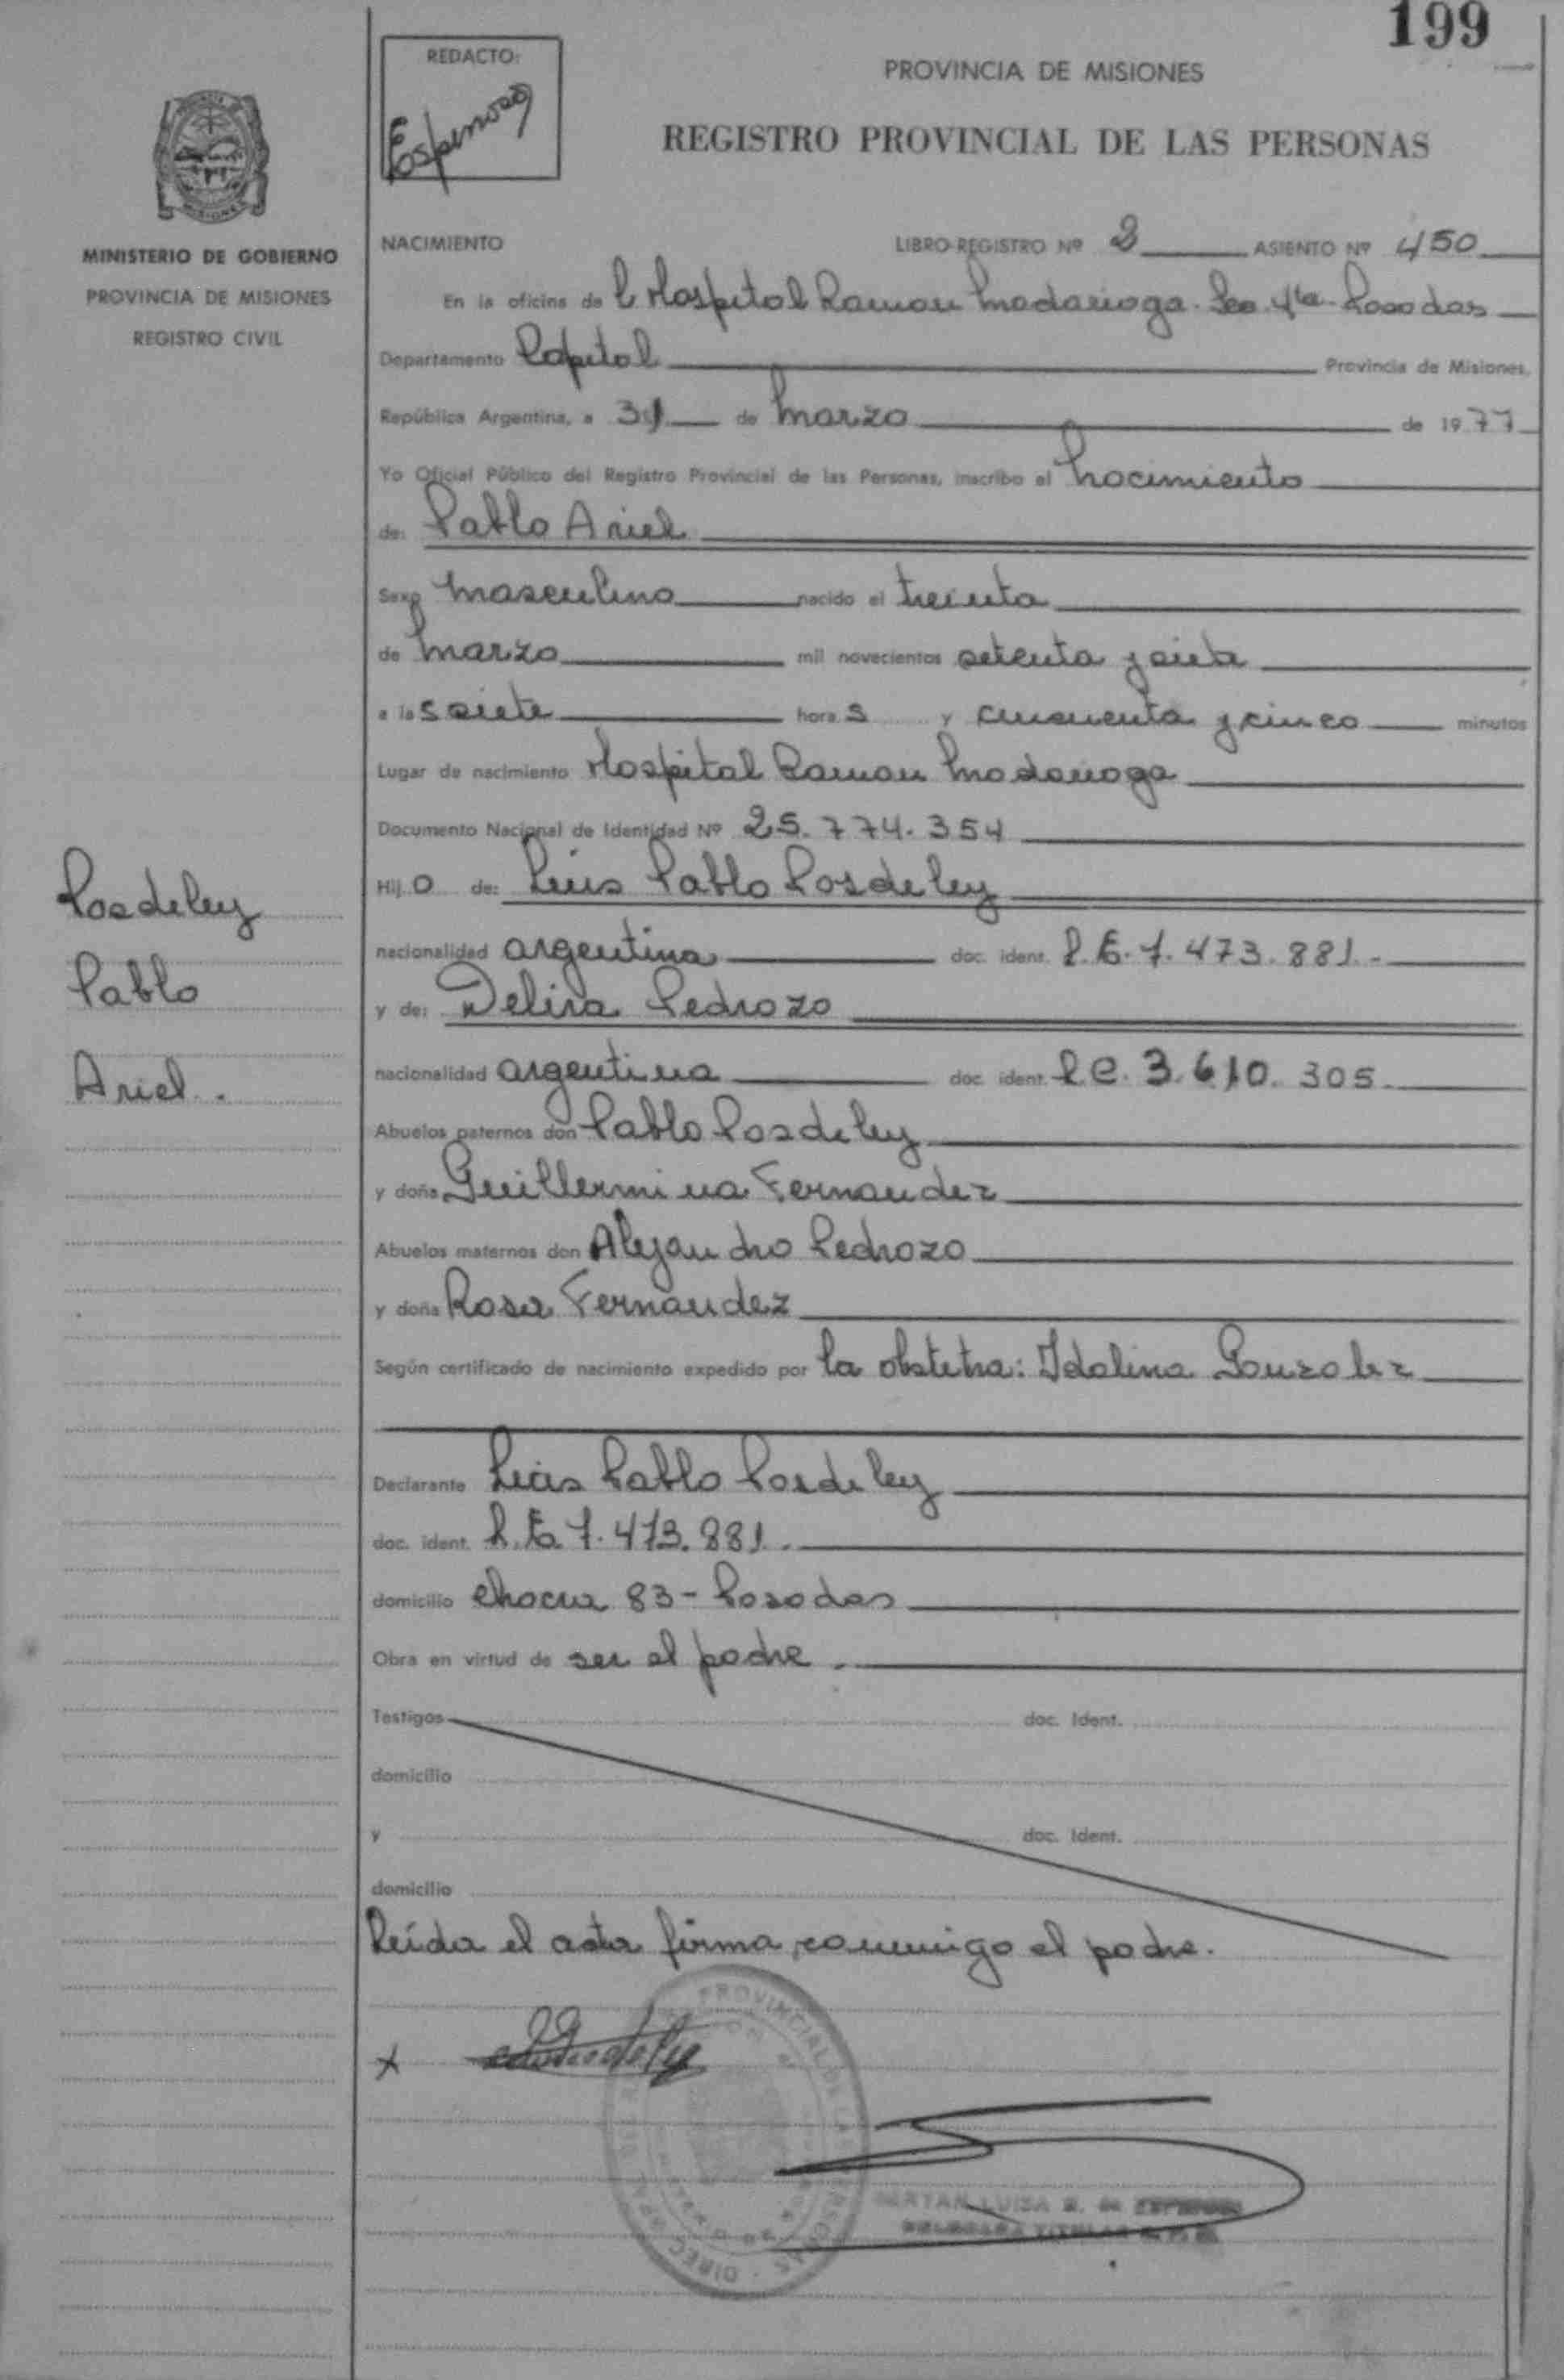 199
REDACTO:
Espinosa
PROVINCIA DE MISIONES
REGISTRO PROVINCIAL DE LAS PERSONAS
MINISTERIO DE GOBIERNO
PROVINCIA DE MISIONES
REGISTRO CIVIL
NACIMIENTO LIBRO-REGISTRO Nº 2 ASIENTO Nº 450
En la oficina de l Hospital Ramon Madariaga. Sec. 4ta Posadas
Departamento Capital Provincia de Misiones,
República Argentina, a 31 de Marzo de 1977
Yo Oficial Público del Registro Provincial de las Personas, inscribo el nacimiento
de: Pablo Ariel
Sexo masculino nacido el treinta
de marzo mil novecientos setenta y siete
a las siete horas y cincuenta y cinco minutos
Lugar de nacimiento Hospital Ramon Madariaga
Documento Nacional de Identidad Nº 25.774.354
Hijo de: Luis Pablo Posdeley
nacionalidad argentina doc. ident. L.E. 7.473.881.-
y de: Delira Pedrozo
nacionalidad argentina doc. ident. L.C. 3.610.305
Abuelos paternos don Pablo Posdeley
y doña Guillermina Fernandez
Abuelos maternos don Alejandro Pedrozo
y doña Rosa Fernandez
Según certificado de nacimiento expedido por la obstetra: Idalina Gonzalez
Declarante Luis Pablo Posdeley
doc. ident. L.E. 7.473.881.
domicilio chacra 83 - Posadas
Obra en virtud de ser el padre.
Testigos doc. Ident.
domicilio
y doc. Ident.
domicilio
Leída el acta firma conmigo el padre.
x
Posdeley
Pablo
Ariel.